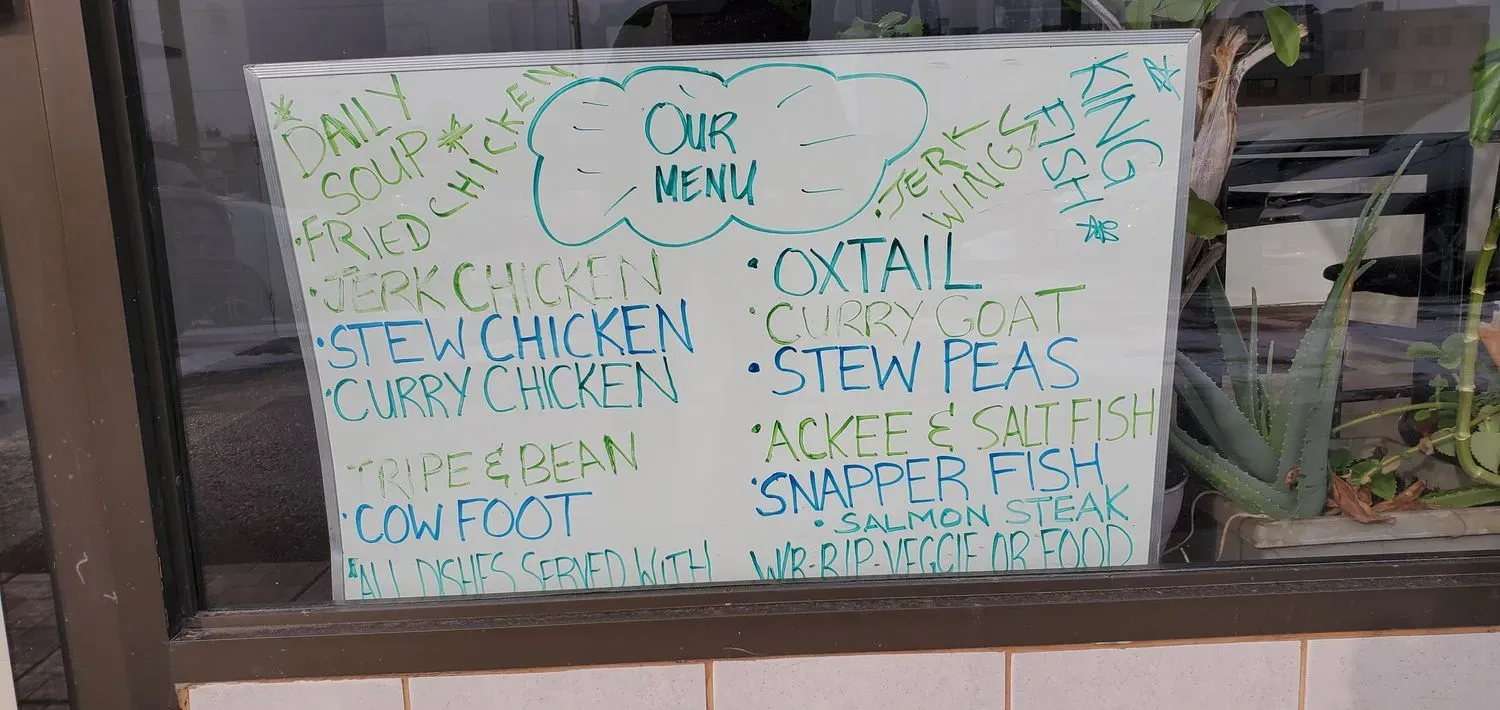 OUR
MENU
* DAILY
SOUP *
• FRIED CHICKEN
• JERK CHICKEN
• STEW CHICKEN
• CURRY CHICKEN
TRIPE & BEAN
• COW FOOT
• JERK
WINGS
* KING
FISH *
• OXTAIL
• CURRY GOAT
• STEW PEAS
• ACKEE & SALT FISH
• SNAPPER FISH
• SALMON STEAK
* ALL DISHES SERVED WITH W/R-R/P-VEGGIE OR FOOD